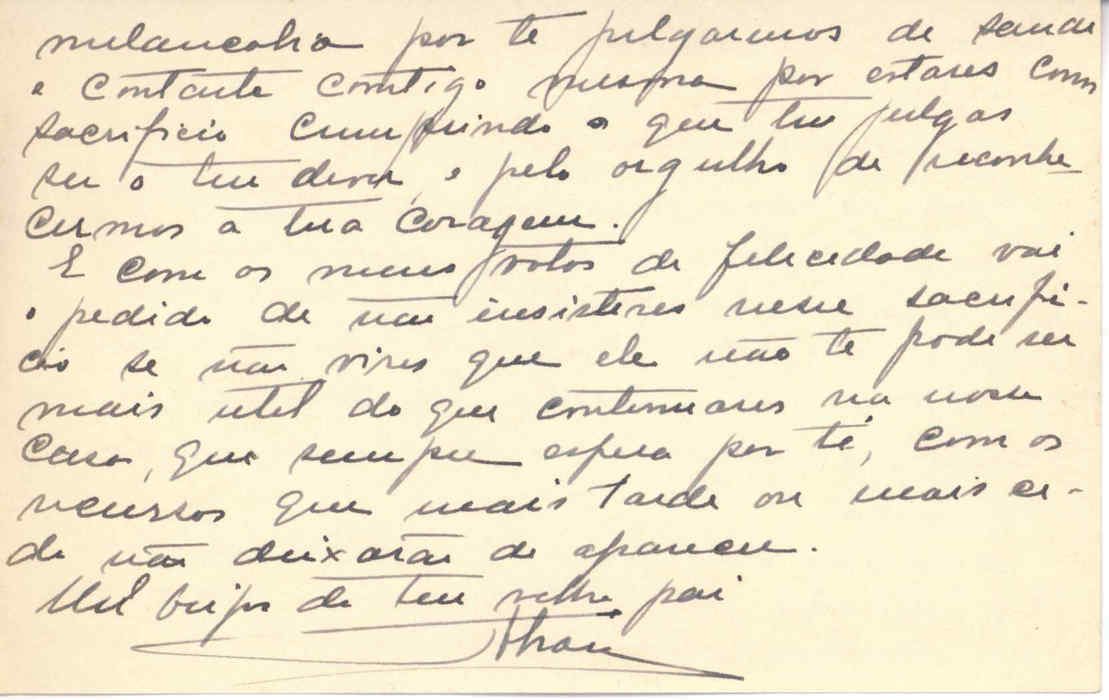 melancolia por te julgarmos de saude
e contente comtigo mesma por estares com
sacrificio cumprindo o que tu julgas
ser o teu dever, e pelo orgulho de reconhe-
cermos a tua coragem.
E com os meus votos de felicidade vai
o pedido de não insistires nesse sacrifi-
cio se não vires que ele não te pode ser
mais util do que continuares na nossa
casa, que sempre espera por ti, com os
recursos que mais tarde ou mais ce-
do não deixarão de aparecer.
Mil beijos do teu velho pai